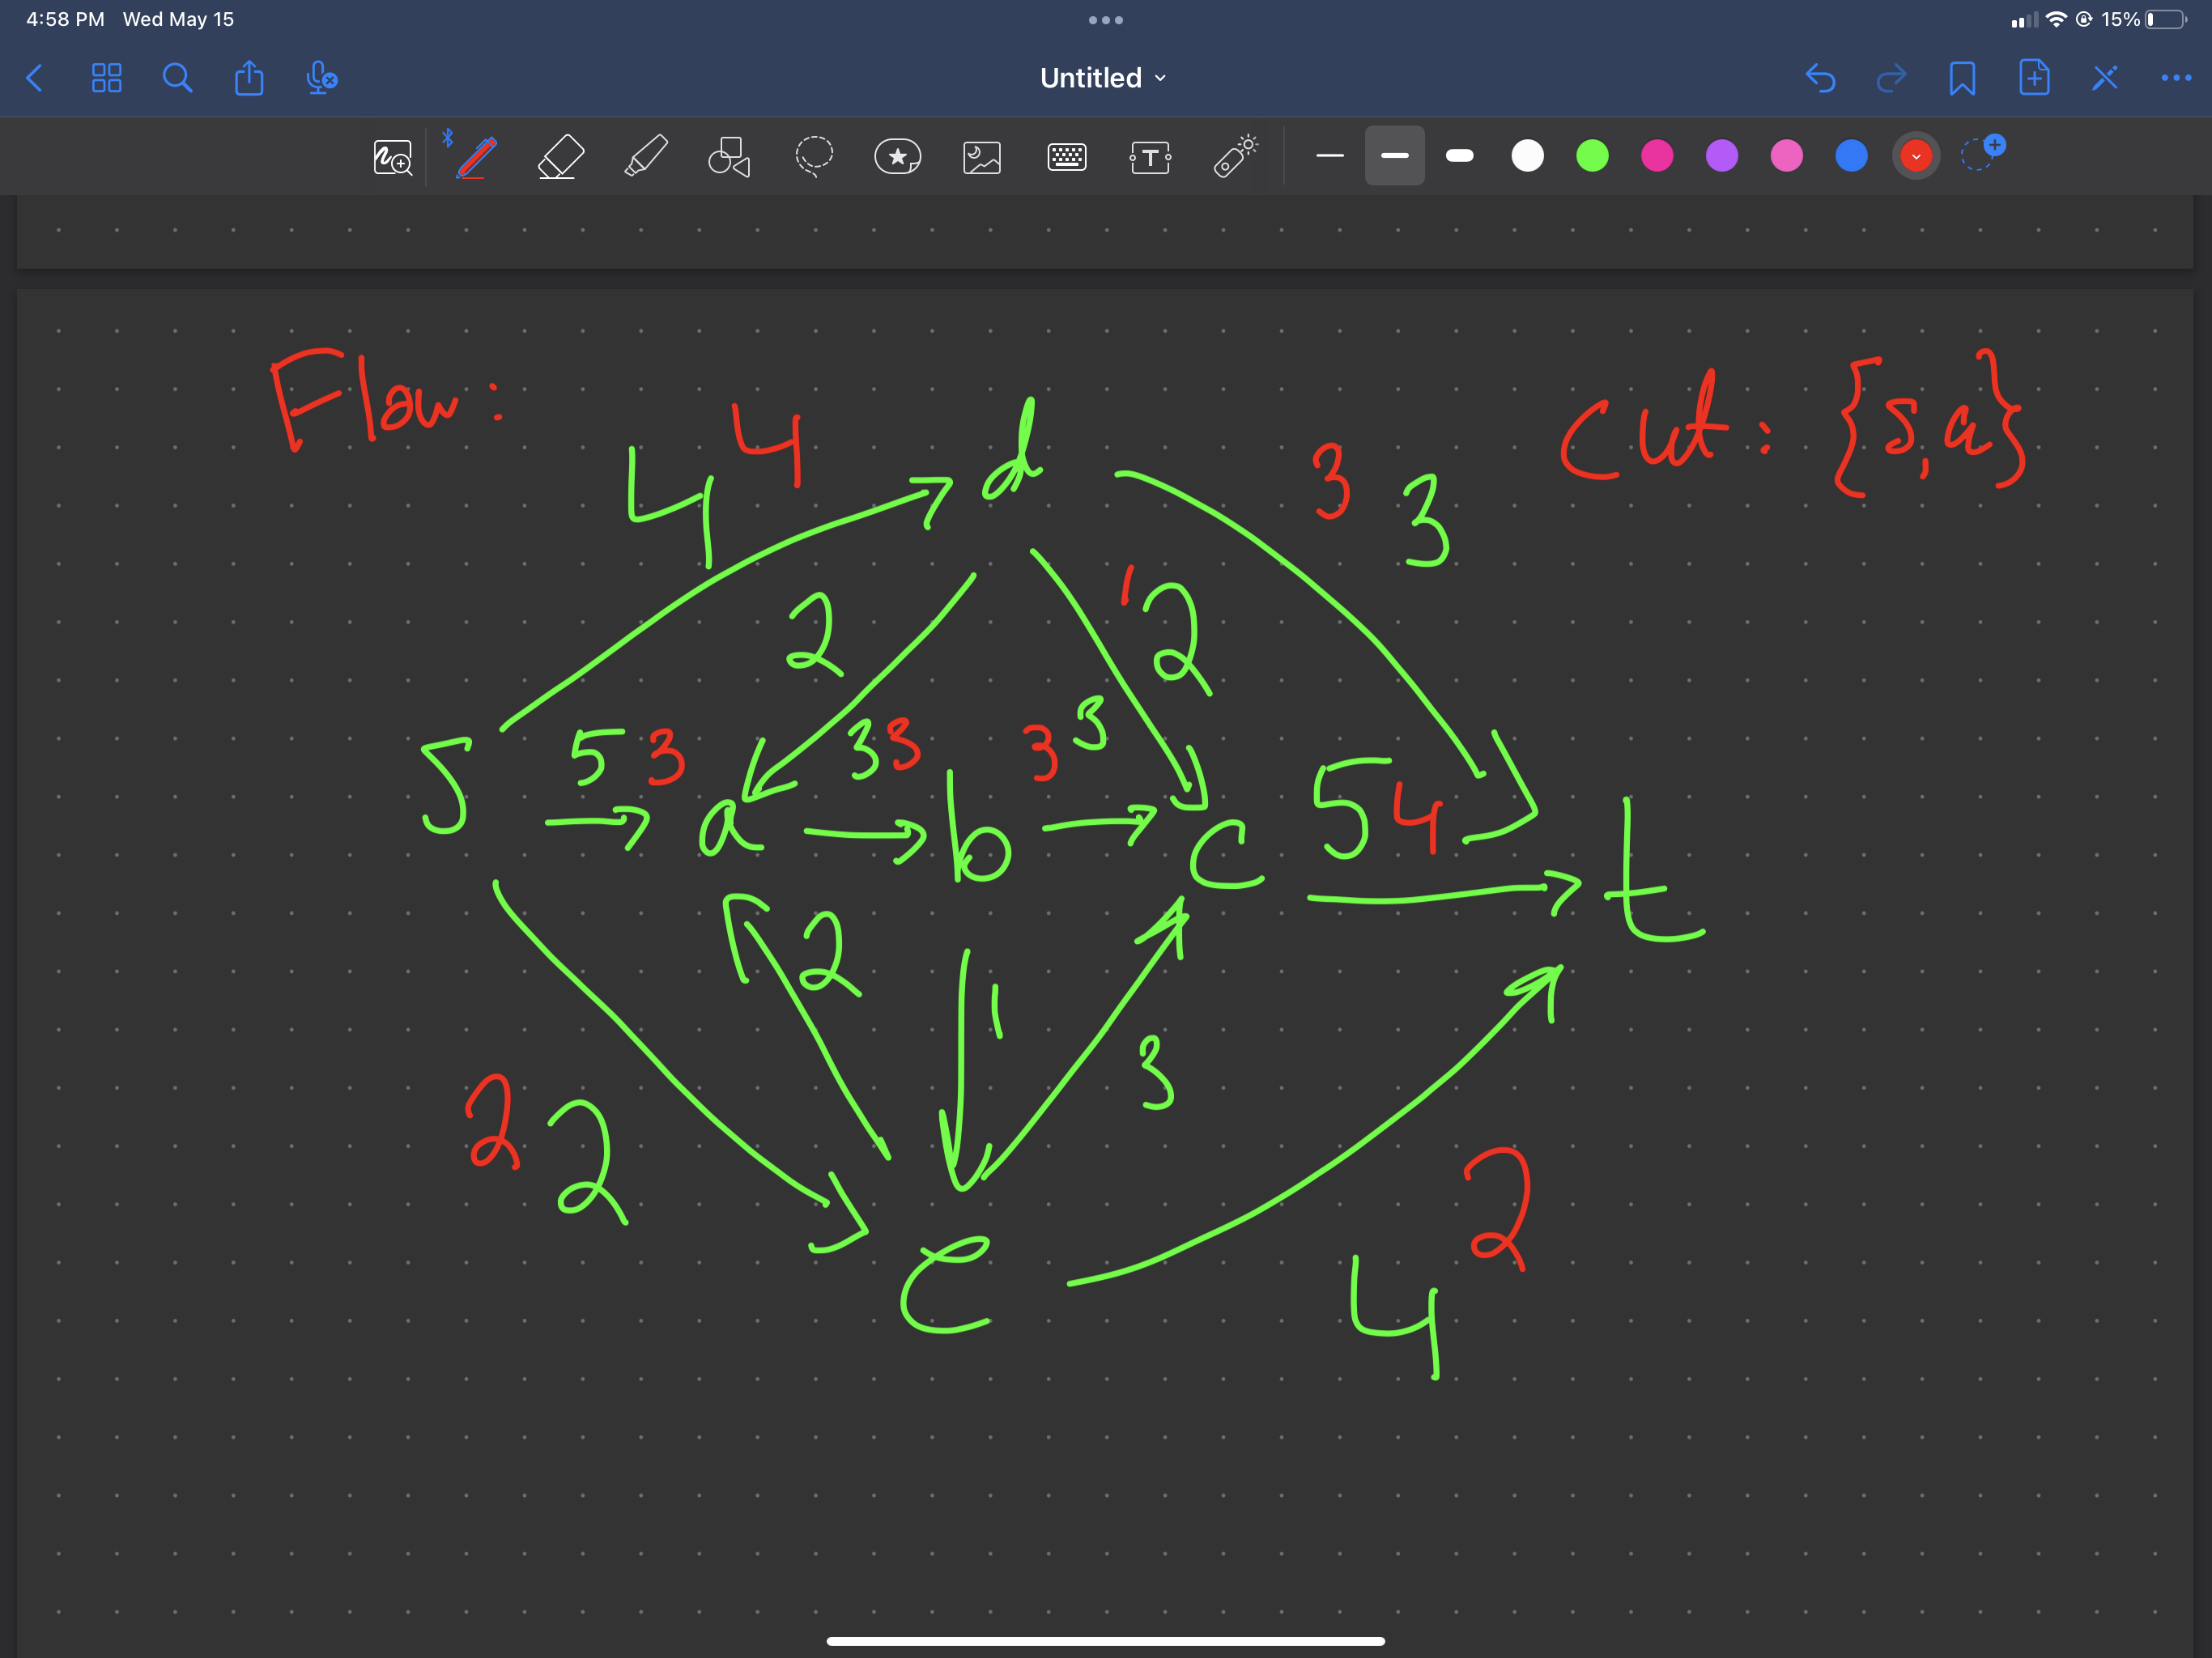 4:58 PM Wed May 15
15%
Untitled
T
Flow:
Cut: {s,a}
4 4 d 3 3
2 1 2
s 5 3 a 3 3 b 3 3 c 5 4 t
2 1 3
2 2
e 4 2